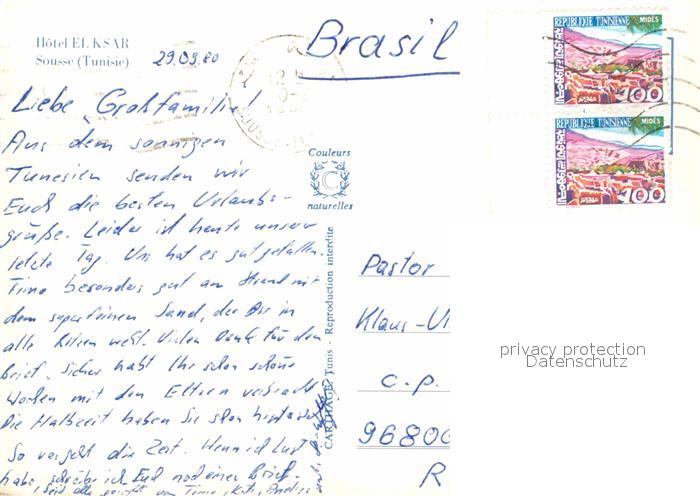 Hôtel EL KSAR
Sousse (Tunisie)
29.09.80
Brasil
REPUBLIQUE TUNISIENNE MIDÈS
100
REPUBLIQUE TUNISIENNE MIDÈS
100
Liebe "Großfamilie"!
Aus dem sonnigen
Tunesien senden wir
Euch die besten Urlaubs-
grüße. Leider ist heute unser
letzte Tag. Uns hat es gut gefallen.
Timo besonders gut am Strand mit
dem superfeinen Sand, der in
alle Ritzen weht. Vielen Dank für den
Brief. Sicher habt Ihr schon schöne
Wochen mit den Eltern verbracht
Die Halbzeit haben Sie schon
So vergeht die Zeit. Wenn ich Lust
habe, schreibe ich Euch noch einen Brief.
Seid alle von Timo,
Couleurs
C
naturelles
CARTHAGE, Tunis - Reproduction interdite
Pastor
Klaus-Ul
C.P.
96800
R
privacy protection
Datenschutz